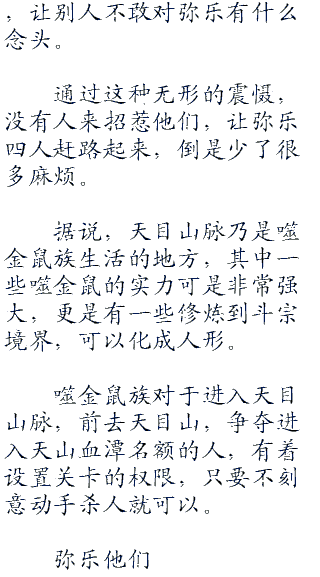 ，让别人不敢对弥乐有什么
念头。
通过这种无形的震慑，
没有人来招惹他们，让弥乐
四人赶路起来，倒是少了很
多麻烦。
据说，天目山脉乃是噬
金鼠族生活的地方，其中一
些噬金鼠的实力可是非常强
大，更是有一些修炼到斗宗
境界，可以化成人形。
噬金鼠族对于进入天目
山脉，前去天目山，争夺进
入天山血潭名额的人，有着
设置关卡的权限，只要不刻
意动手杀人就可以。
弥乐他们